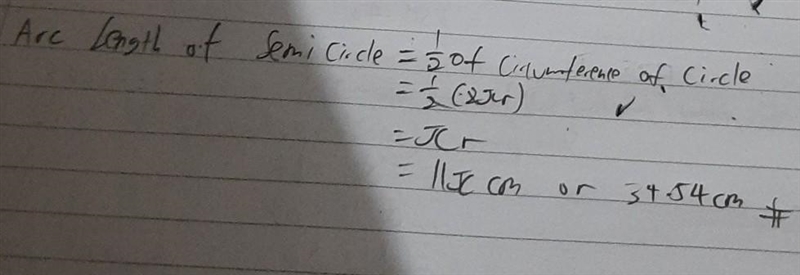 Arc Length of Semi Circle = 1/2 of Circumference of Circle
= 1/2 (2πr) ✓
= πr
= 11π cm or 34.54 cm #